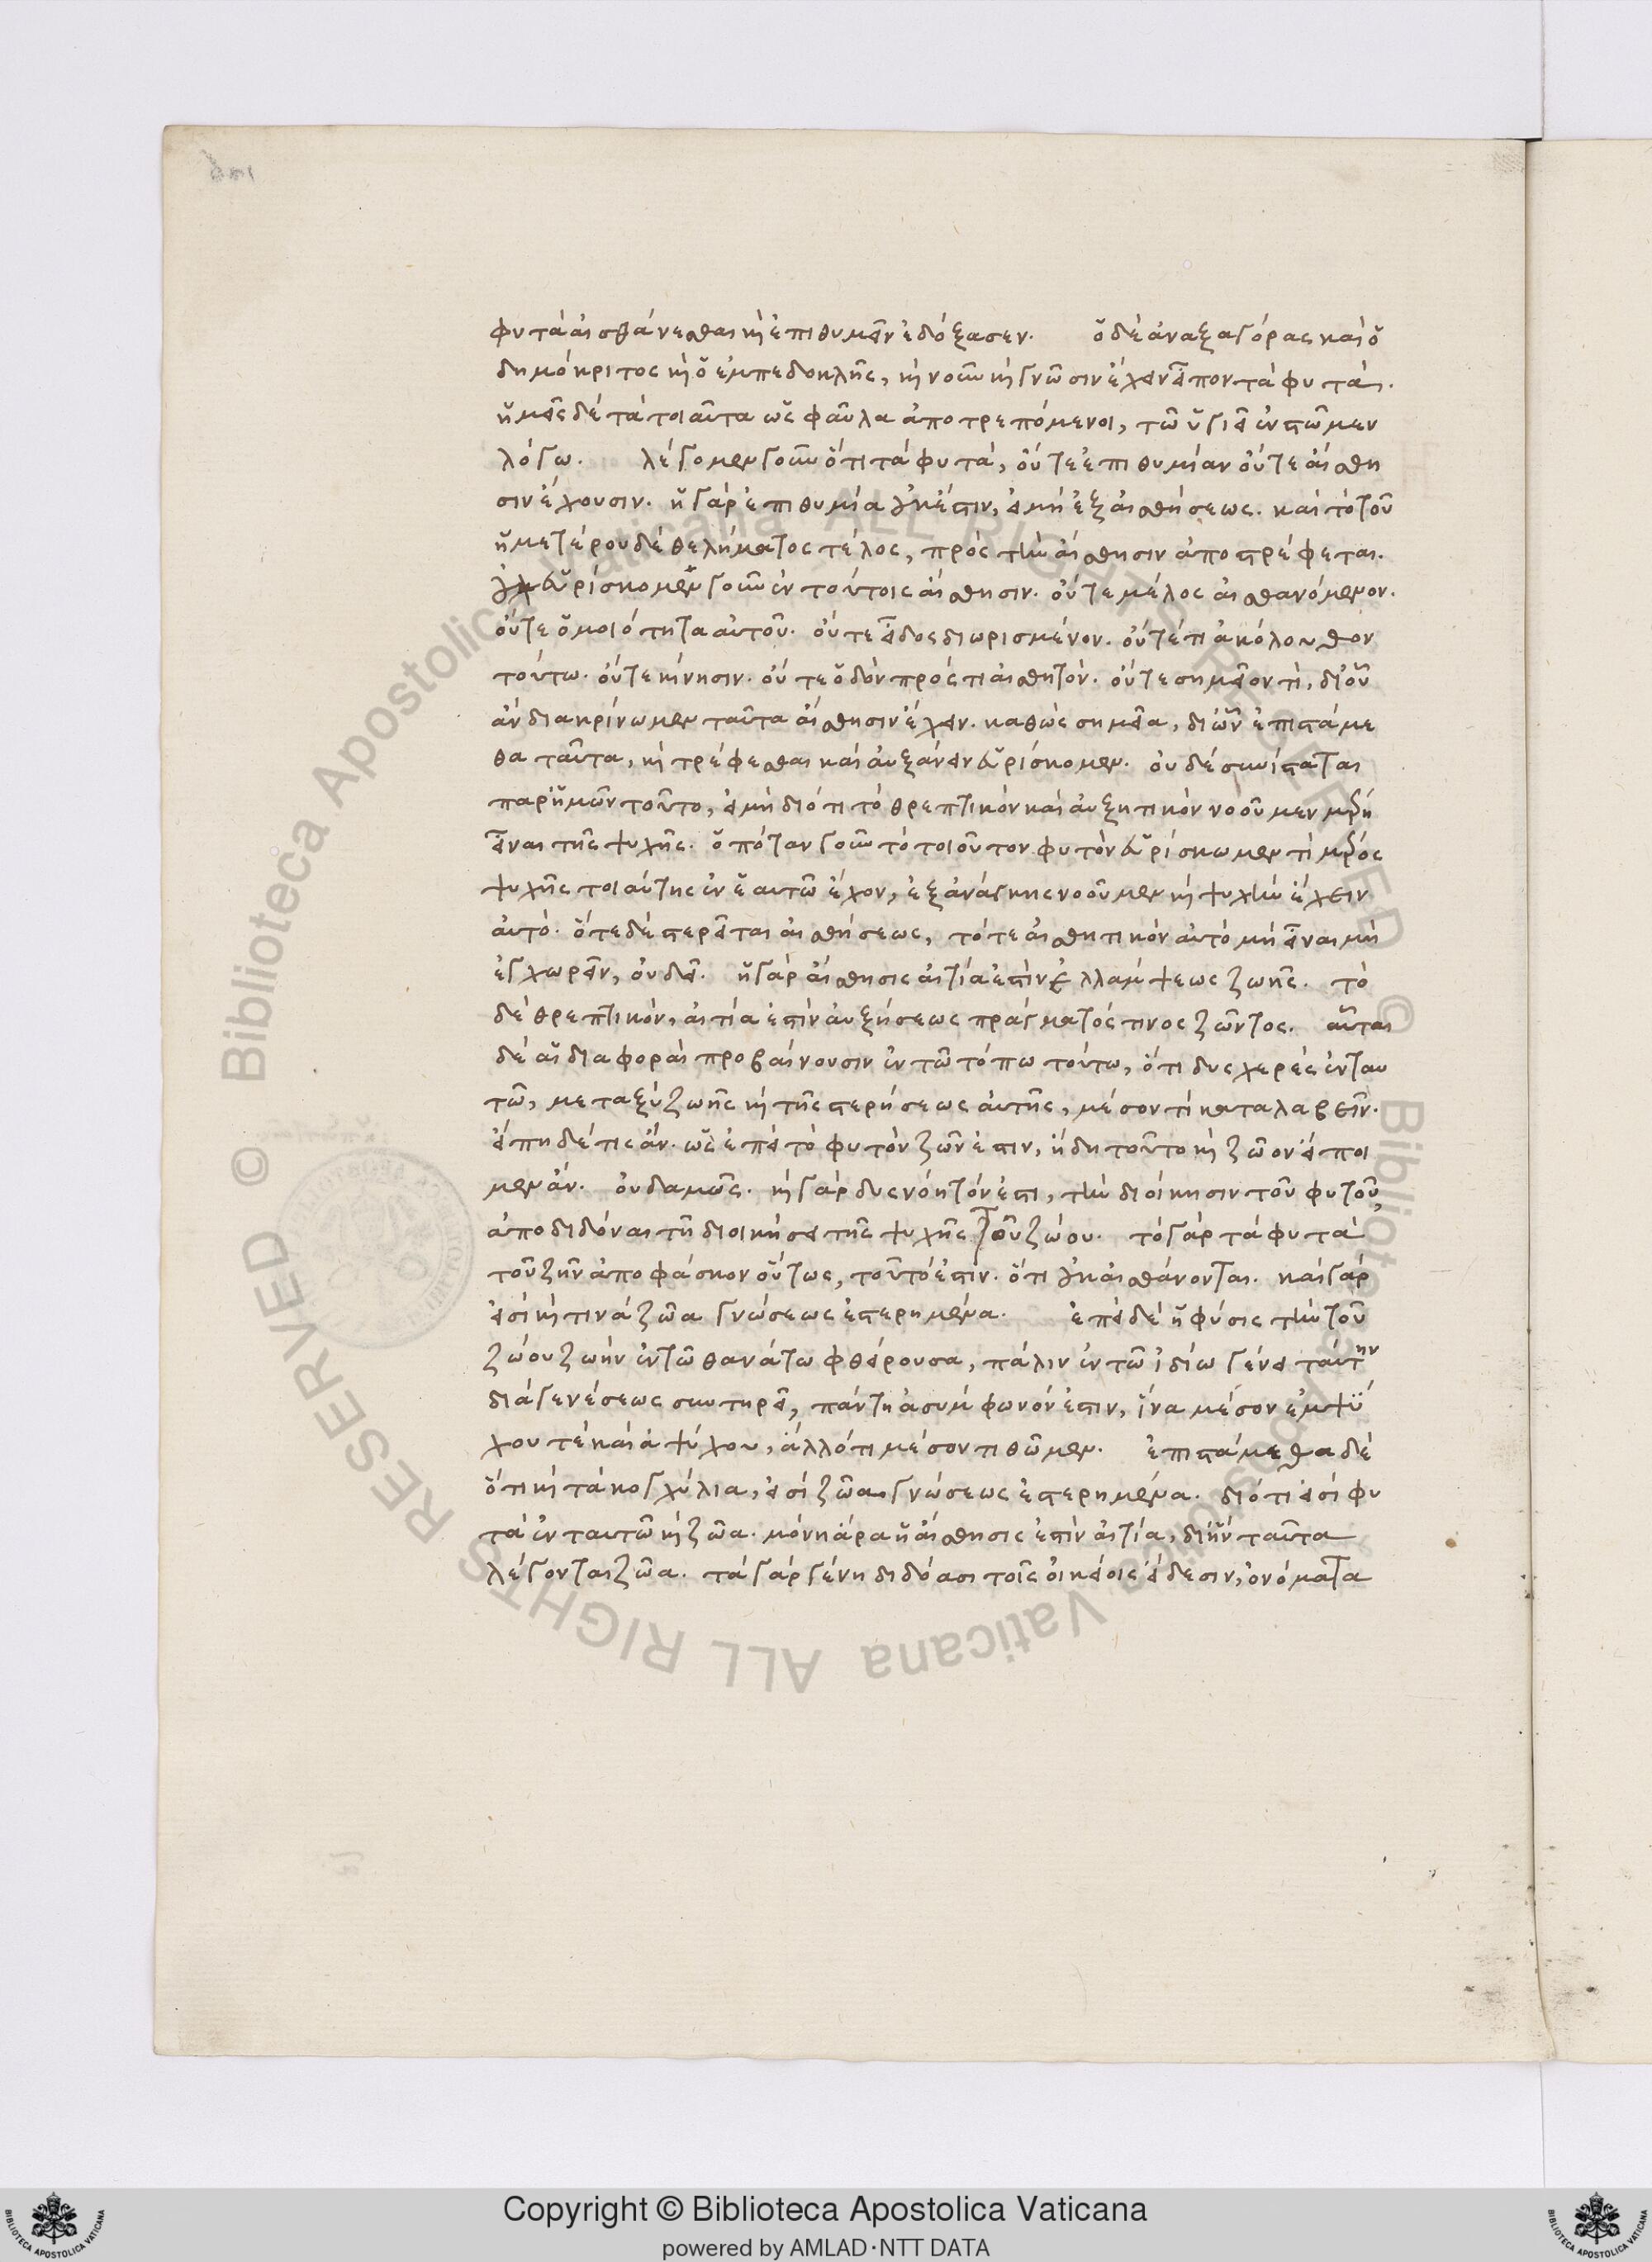 φυτὰ αἰσθάνεσθαι καὶ ἐπιθυμεῖν ἐδόξασεν. ὁ δὲ ἀναξαγόρας καὶ ὁ
δημόκριτος καὶ ὁ ἐμπεδοκλῆς, καὶ νοῦν καὶ γνῶσιν ἔχειν εἶπον τὰ φυτά.
ἡμεῖς δὲ τὰ τοιαῦτα ὡς φαῦλα ἀποτρεπόμενοι, τῶ ὑγιεῖ ἐνστῶμεν
λόγω. λέγομεν γοῦν ὅτι τὰ φυτὰ, οὔτε ἐπιθυμίαν οὔτε αἴσθη
σιν ἔχουσιν. ἡ γὰρ ἐπιθυμία οὐκ ἔστιν, εἰ μὴ ἐξ αἰσθήσεως. καὶ τὸ τοῦ
ἡμετέρου δὲ θελήματος τέλος, πρὸς τὴν αἴσθησιν ἀποστρέφεται.
οὐχ εὑρίσκομεν γοῦν ἐν τούτοις αἴσθησιν. οὔτε μέλος αἰσθανόμενον.
οὔτε ὁμοιότητα αὐτοῦ. οὔτε εἶδος διωρισμένον. οὔτέ τι ἀκόλουθον
τούτω. οὔτε κίνησιν. οὔτε ὁδὸν πρός τι αἰσθητόν. οὔτε σημεῖόν τι, δι οὗ
ἂν διακρίνωμεν ταῦτα αἴσθησιν ἔχειν. καθὼς σημεῖα, δι ὧν ἐπιστάμε
θα ταῦτα, καὶ τρέφεσθαι καὶ αὐξάνειν εὑρίσκομεν. οὐδὲ συνίσταται
παρ ἡμῶν τοῦτο, εἰ μὴ διότι τὸ θρεπτικὸν καὶ αὐξητικὸν νοοῦμεν μέρη
εἶναι τῆς ψυχῆς. ὁπόταν γοῦν τὸ τοιοῦτον φυτὸν εὑρίσκωμεν τὶ μέρος
ψυχῆς τοιαύτης ἐν ἑαυτῶ ἔχον, ἐξ ἀνάγκης νοοῦμεν καὶ ψυχὴν ἔχειν
αὐτό. ὅτε δὲ στερεῖται αἰσθήσεως, τότε αἰσθητικὸν αὐτὸ μὴ εἶναι μὴ
ἐγχωρεῖν, οὐ δεῖ. ἡ γὰρ αἴσθησις αἰτία ἐστὶν ἐλλάμψεως ζωῆς. τὸ
δὲ θρεπτικὸν, αἰτία ἐστὶν αὐξήσεως πράγματός τινος ζῶντος. αὗται
δὲ αἱ διαφοραὶ προβαίνουσιν ἐν τῶ τόπω τούτω, ὅτι δυσχερὲς ἐν ταυ
τῶ, μεταξὺ ζωῆς καὶ τῆς στερήσεως αὐτῆς, μέσον τὶ καταλαβεῖν.
εἴπη δέ τις ἄν. ὡς ἐπεὶ τὸ φυτὸν ζῶν ἐστιν, ἤδη τοῦτο καὶ ζῶον εἴποι
μεν ἄν. οὐδαμῶς. καὶ γὰρ δυσνόητόν ἐστι, τὴν διοίκησιν τοῦ φυτοῦ,
ἀποδιδόναι τῆ διοικήσει τῆς ψυχῆς τοῦ ζώου. τὸ γὰρ τὰ φυτὰ
τοῦ ζῆν ἀποφάσκον οὕτως, τοῦτό ἐστιν. ὅτι οὐκ αἰσθάνονται. καὶ γὰρ
εἰσὶ καὶ τινὰ ζῶα γνώσεως ἐστερημένα. ἐπεὶ δὲ ἡ φύσις τὴν τοῦ
ζώου ζωὴν ἐν τῶ θανάτω φθείρουσα, πάλιν ἐν τῶ ἰδίω γένει ταύτην
διὰ γενέσεως συντηρεῖ, πάντη ἀσύμφωνόν ἐστιν, ἵνα μέσον ἐμψύ
χου τὲ καὶ ἀψύχου, ἄλλό τι μέσον τιθῶμεν. ἐπιστάμεθα δὲ
ὅτι καὶ τὰ κογχύλια, εἰσὶ ζῶα γνώσεως ἐστερημένα. διότι εἰσὶ φυ
τὰ ἐν ταυτῶ καὶ ζῶα. μόνη ἄρα ἡ αἴσθησις ἐστὶν αἰτία, δι ἣν ταῦτα
λέγονται ζῶα. τὰ γὰρ γένη διδόασι τοῖς οἰκείοις εἴδεσιν, ὀνόματα
© Biblioteca Apostolica Vaticana ALL RIGHTS RESERVED
Copyright © Biblioteca Apostolica Vaticana
powered by AMLAD·NTT DATA